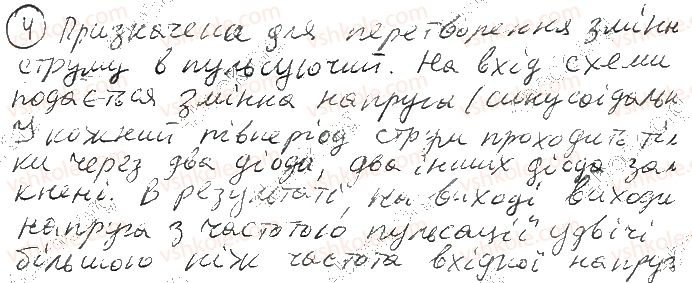 4) Призначена для перетворення змінн
струму в пульсуючий. На вхід схеми
подається змінна напруга (синусоідальн
У кожний півперіод струм проходить тіл
ки через два діода, два інших діода зам
кнені. В результаті, на виході виходи
напруга з частотою пульсації удвічі
більшою ніж частота вхідної напруз